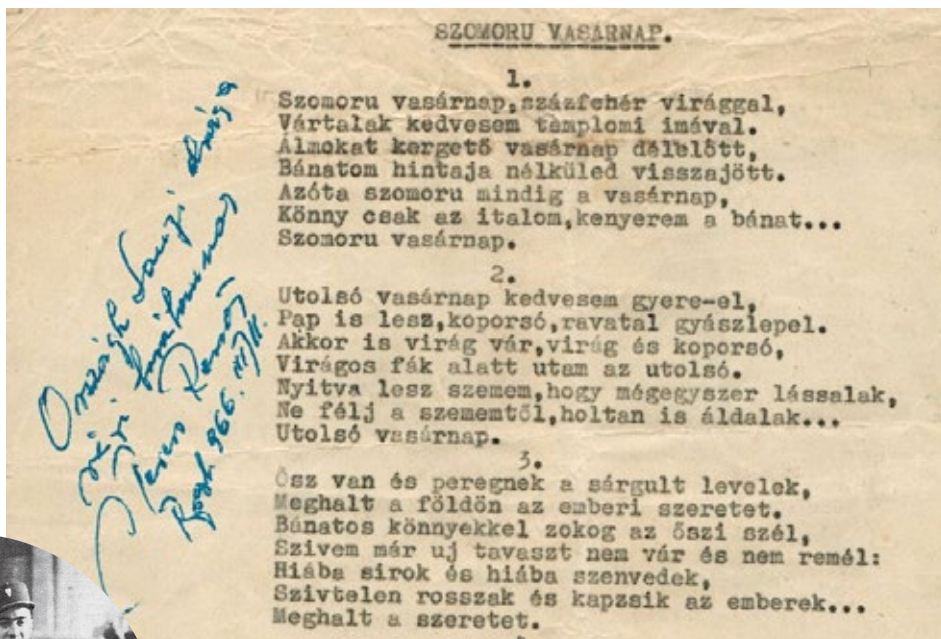 SZOMORU VASARNAP.
1.
Szomoru vasárnap,százfehér virággal,
Vártalak kedvesem templomi imával.
Álmokat kergető vasárnap délelőtt,
Bánatom hintaja nélküled visszajött.
Azóta szomoru mindig a vasárnap,
Könny csak az italom,kenyerem a bánat...
Szomoru vasárnap.
2.
Utolsó vasárnap kedvesem gyere-el,
Pap is lesz,koporsó,ravatal gyászlepel.
Akkor is virág vár,virág és koporsó,
Virágos fák alatt utam az utolsó.
Nyitva lesz szemem,hogy mégegyszer lássalak,
Ne félj a szememtől,holtan is áldalak...
Utolsó vasárnap.
3.
Ősz van és peregnek a sárgult levelek,
Meghalt a földön az emberi szeretet.
Bánatos könnyekkel zokog az őszi szél,
Szivem már uj tavaszt nem vár és nem remél:
Hiába sirok és hiába szenvedek,
Szivtelen rosszak és kapzsik az emberek...
Meghalt a szeretet.
Seress Rezső
966.